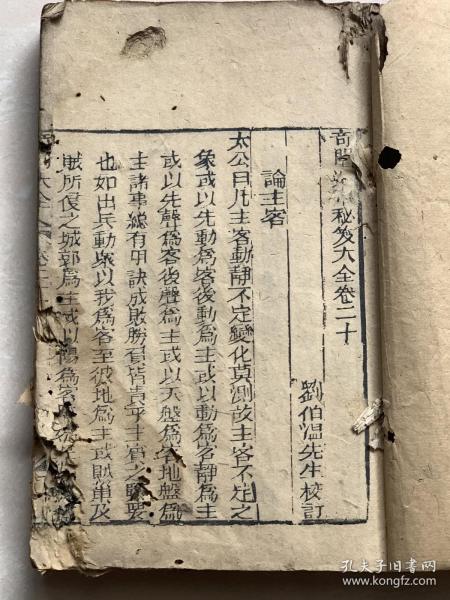 奇門秘笈大全卷二十
劉伯溫先生校訂
論主客
太公曰凡主客動靜不定變化莫測故主客不定之
象或以先動為客後動為主或以動為客靜為主
或以先聲為客後聲為主或以天盤為客地盤為
主諸事總有用訣成敗勝負皆責乎主客之緊要
也如出兵動眾以我為客至彼地為主或賊兵及
賊所侵之城郭為主或以
大全 卷二十
孔夫子旧书网
www.kongfz.com